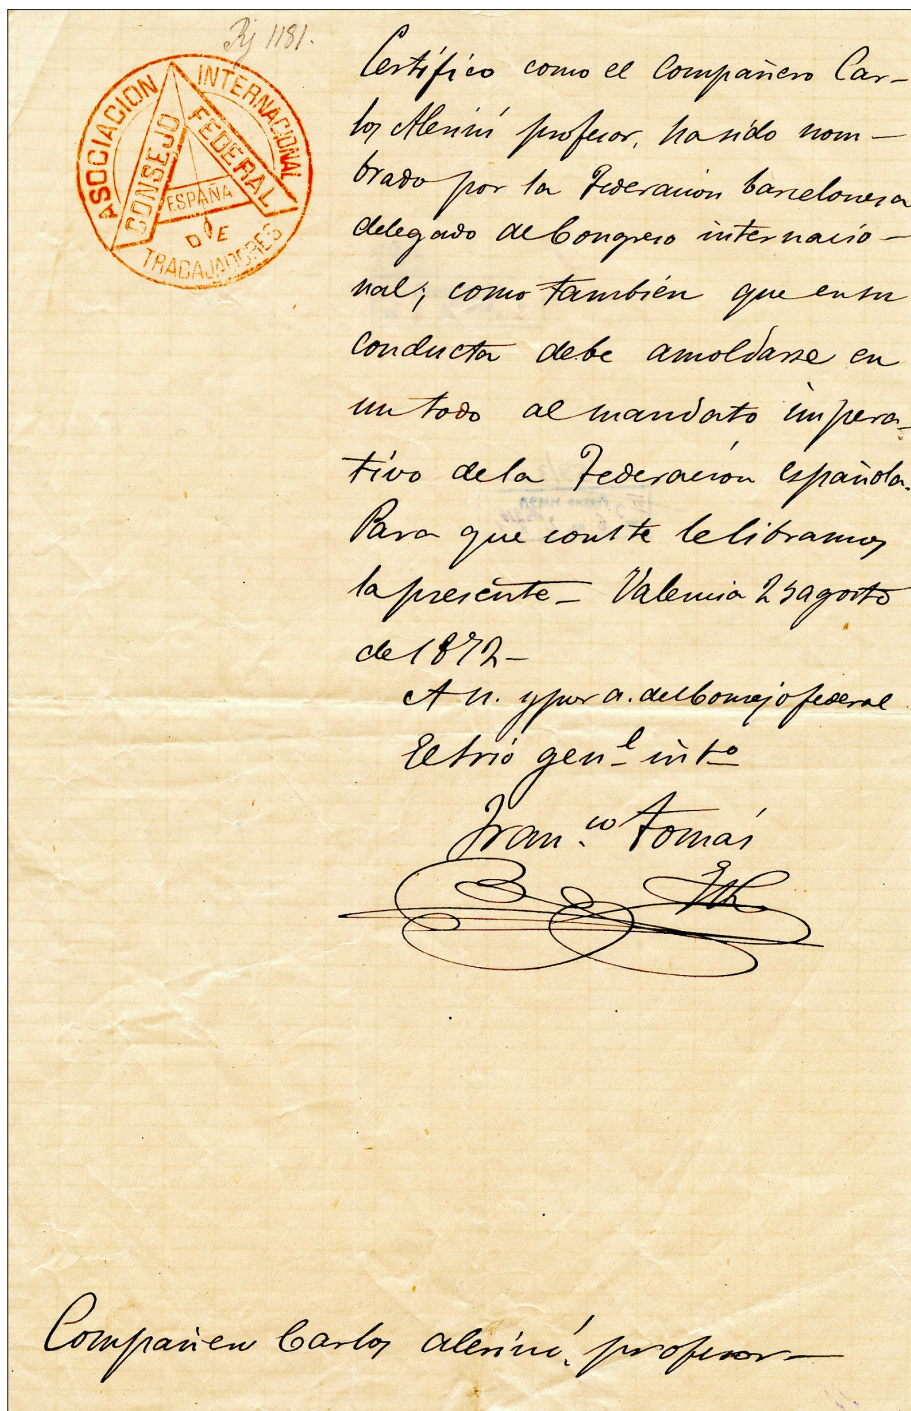 Rj 1181.
ASOCIACION INTERNACIONAL
DE
TRABAJADORES
CONSEJO FEDERAL
ESPAÑA
Certifico como el Compañero Car-
los Alerini profesor, ha sido nom-
brado por la Federacion barcelonesa
delegado al Congreso internacio-
nal; como también que en su
conducta debe amoldarse en
un todo al mandato impera-
tivo de la Federacion española.
Para que conste le libramos
la presente - Valencia 25 agosto
de 1872 -
A n. y por a. del Consejo federal
El Srio genl. into
Franco Tomás
Compañero Carlos Alerini, profesor -